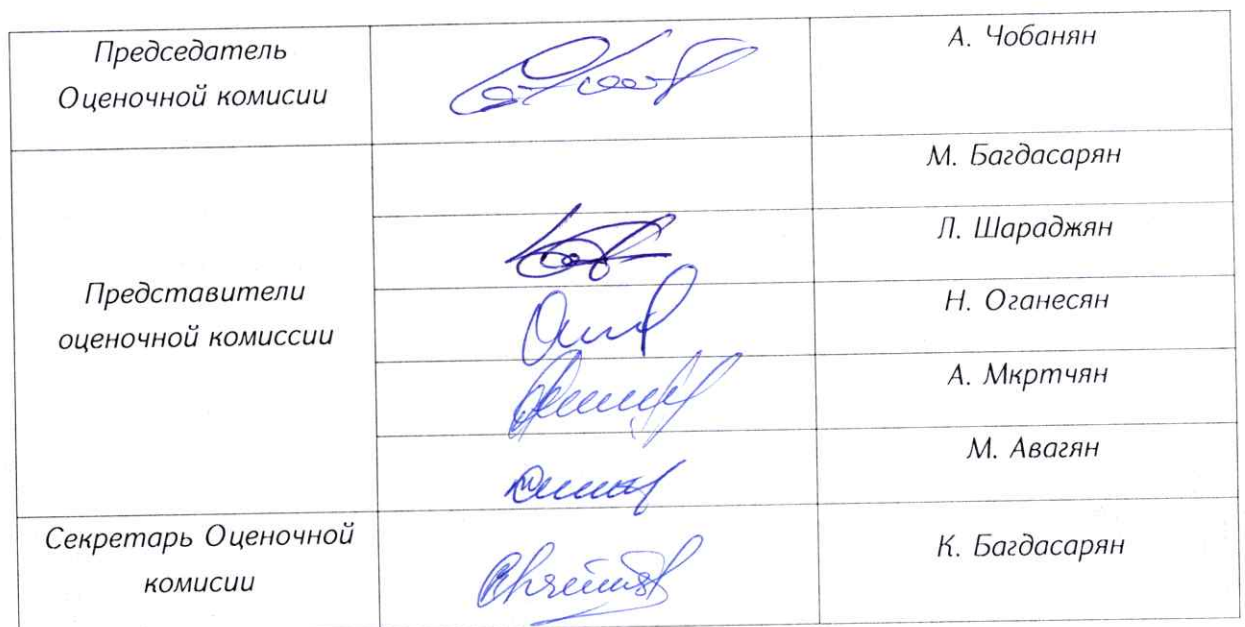 Председатель
Оценочной комисии
А. Чобанян
Представители
оценочной комиссии
М. Багдасарян
Л. Шараджян
Н. Оганесян
А. Мкртчян
М. Авагян
Секретарь Оценочной
комисии
К. Багдасарян